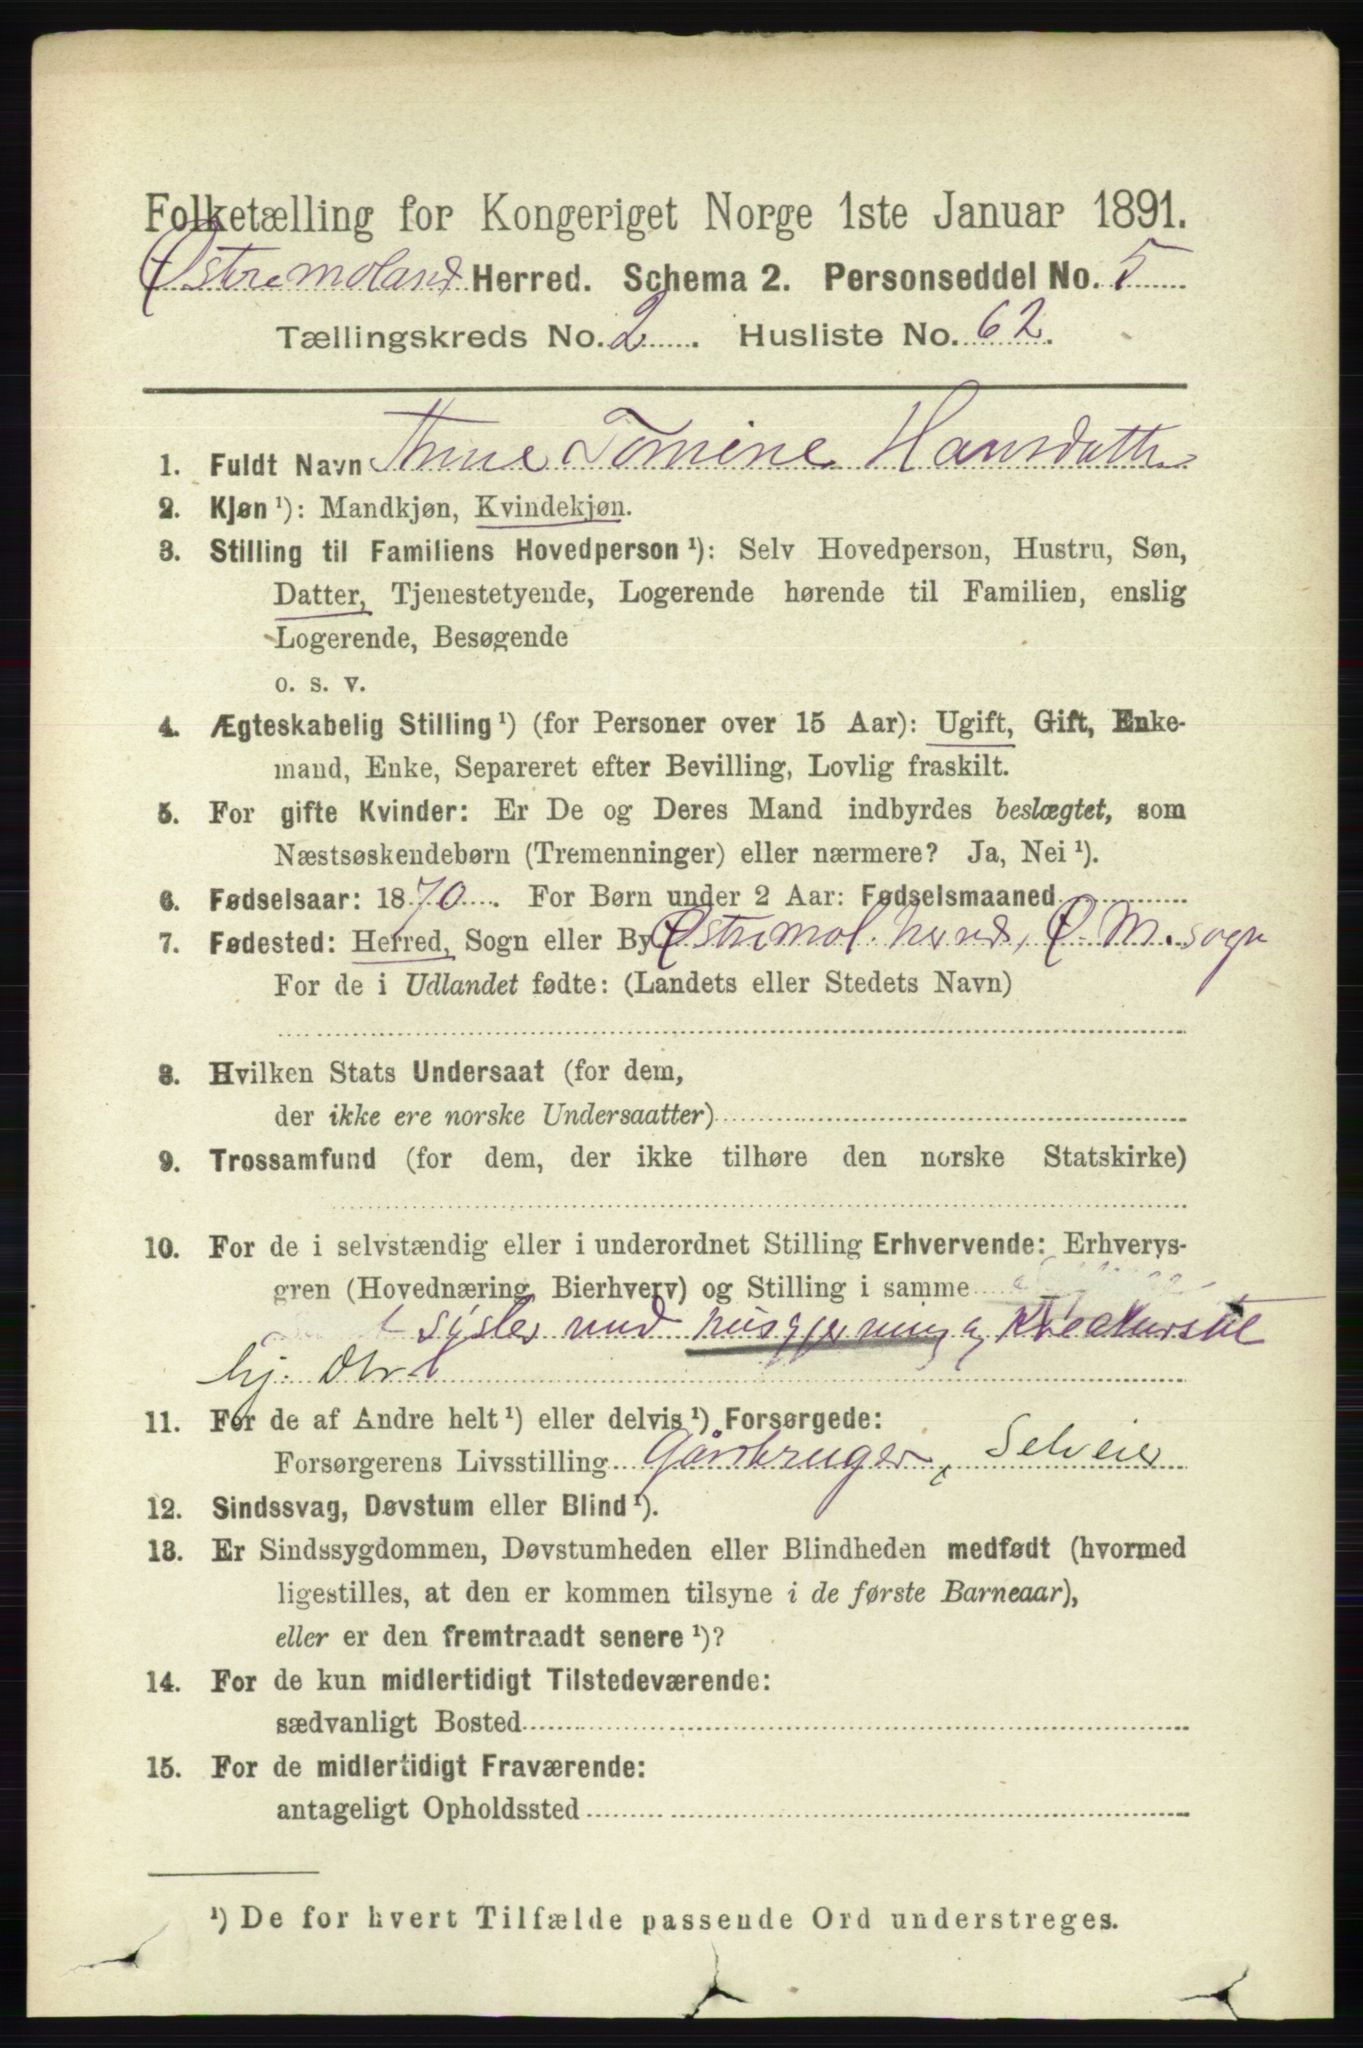 Folketælling for Kongeriget Norge 1ste Januar 1891.
Østre Moland Herred. Schema 2. Personseddel No. 5
Tællingskreds No. 2. Husliste No. 62.
1. Fuldt Navn Anne Tomine Hansdatter
2. Kjøn ¹): Mandkjøn, Kvindekjøn.
3. Stilling til Familiens Hovedperson ¹): Selv Hovedperson, Hustru, Søn,
Datter, Tjenestetyende, Logerende hørende til Familien, enslig
Logerende, Besøgende
o. s. v.
4. Ægteskabelig Stilling ¹) (for Personer over 15 Aar): Ugift, Gift, Enke-
mand, Enke, Separeret efter Bevilling, Lovlig fraskilt.
5. For gifte Kvinder: Er De og Deres Mand indbyrdes beslægtet, som
Næstsøskendebørn (Tremenninger) eller nærmere? Ja, Nei ¹).
6. Fødselsaar: 1870. For Børn under 2 Aar: Fødselsmaaned
7. Fødested: Herred, Sogn eller By Østre Mol. herred, Ø. M. sogn
For de i Udlandet fødte: (Landets eller Stedets Navn)
8. Hvilken Stats Undersaat (for dem,
der ikke ere norske Undersaatter)
9. Trossamfund (for dem, der ikke tilhøre den norske Statskirke)
10. For de i selvstændig eller i underordnet Stilling Erhvervende: Erhvervs-
gren (Hovednæring, Bierhverv) og Stilling i samme
sysler med husgjerning og Kreaturstel
hj. dtr
11. For de af Andre helt ¹) eller delvis ¹) Forsørgede:
Forsørgerens Livsstilling Gårdbruger, Selveier
12. Sindssvag, Døvstum eller Blind ¹).
13. Er Sindssygdommen, Døvstumheden eller Blindheden medfødt (hvormed
ligestilles, at den er kommen tilsyne i de første Barneaar),
eller er den fremtraadt senere ¹)?
14. For de kun midlertidigt Tilstedeværende:
sædvanligt Bosted
15. For de midlertidigt Fraværende:
antageligt Opholdssted
¹) De for hvert Tilfælde passende Ord understreges.